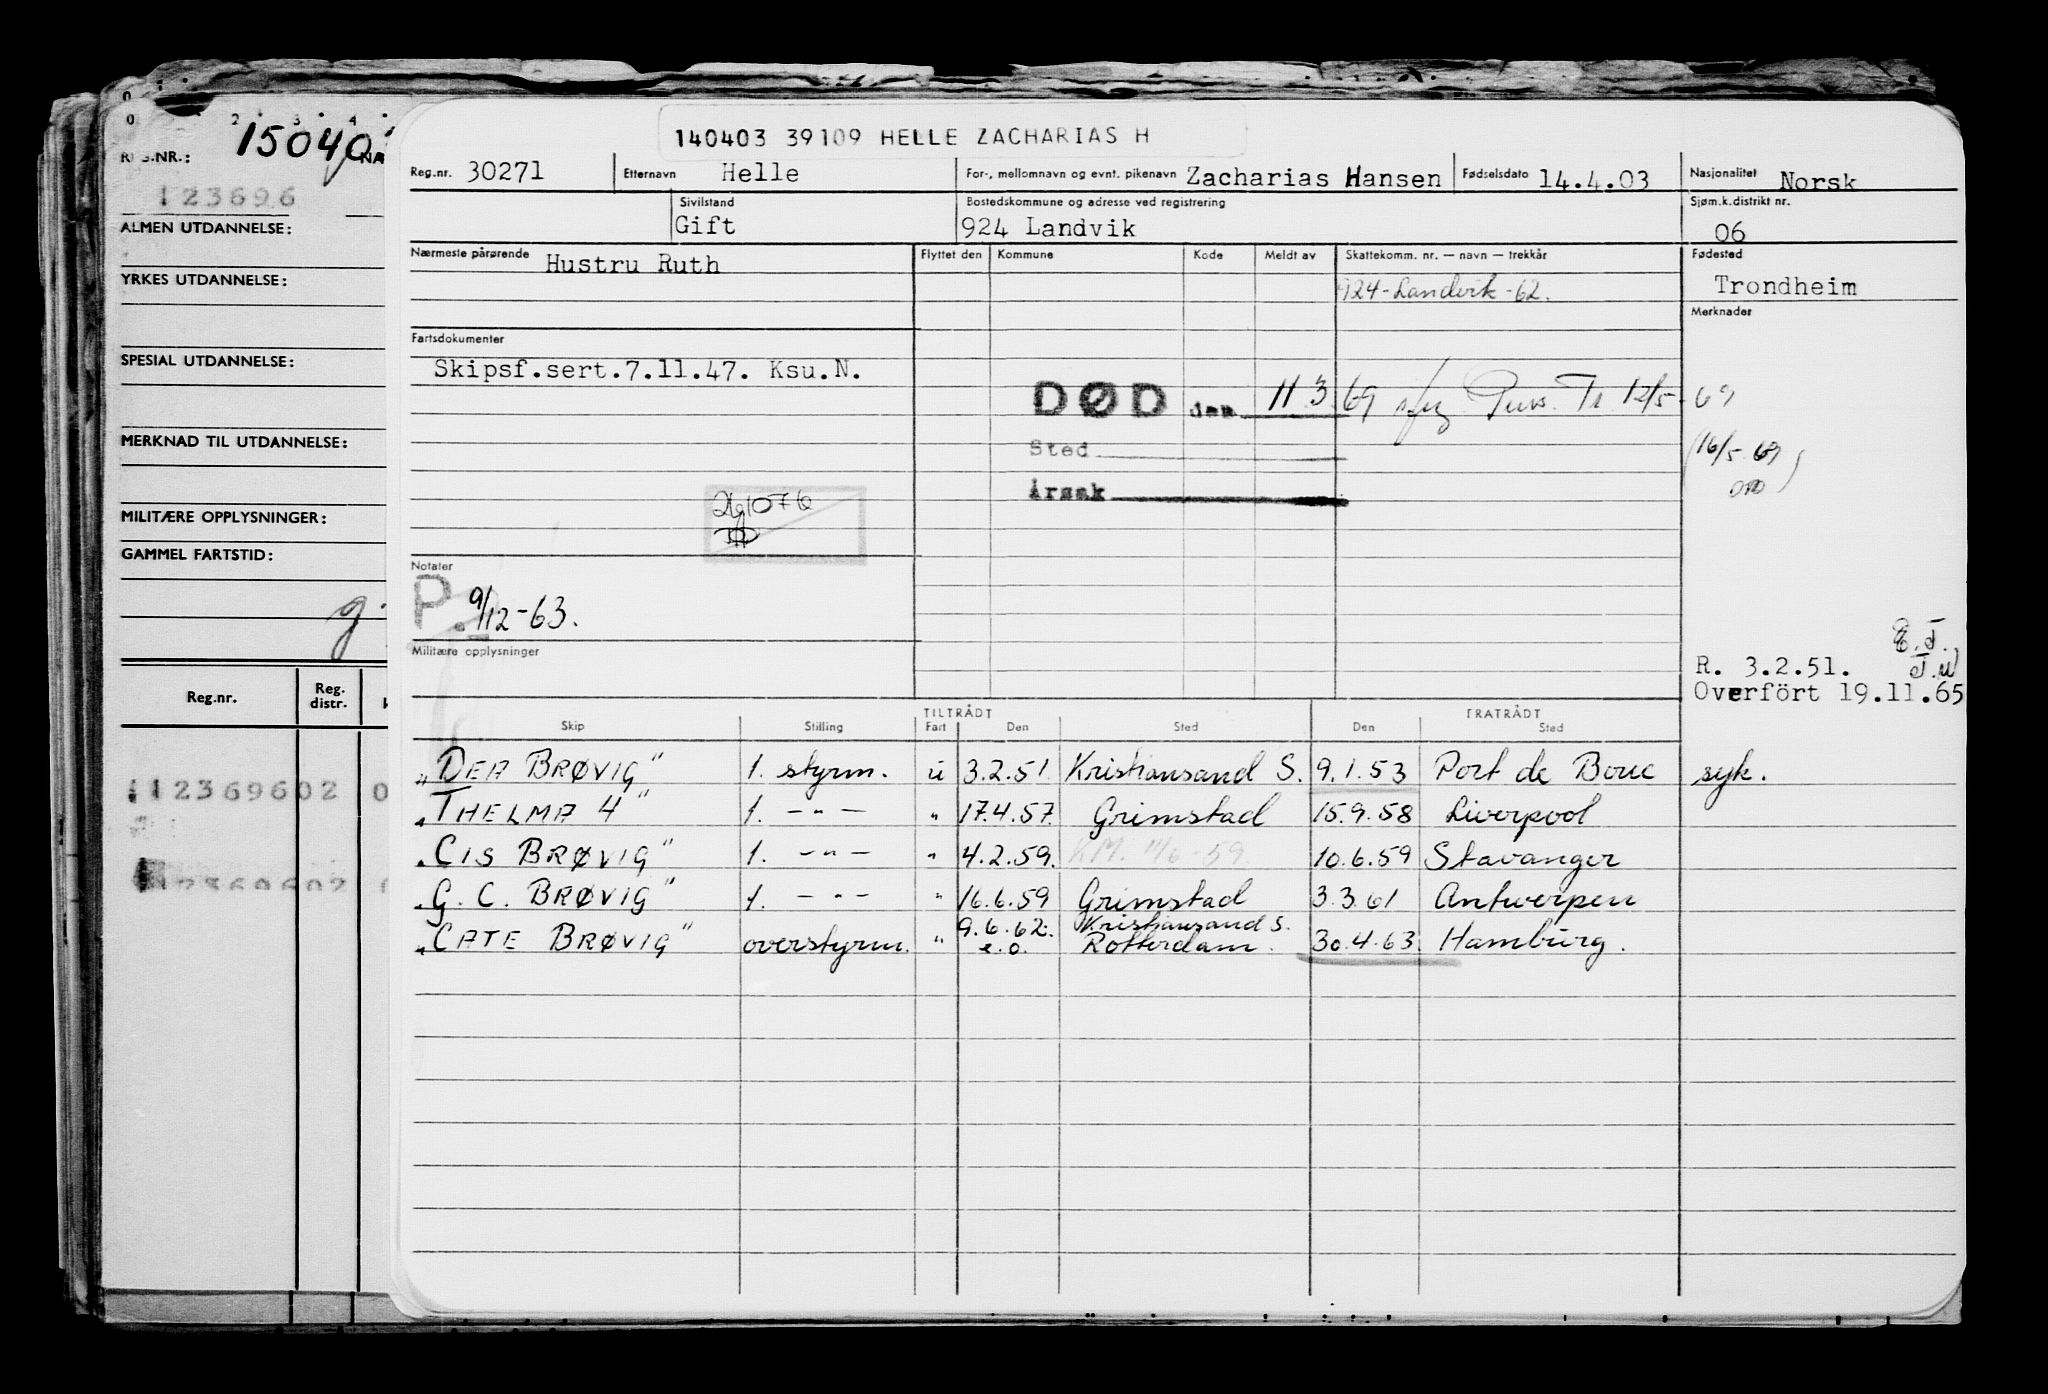 140403 39109 HELLE ZACHARIAS H
Reg.nr. 30271 Etternavn Helle For-, mellomnavn og evnt. pikenavn Zacharias Hansen Fødselsdato 14.4.03 Nasjonalitet Norsk
Sivilstand Gift Bostedskommune og adresse ved registrering 924 Landvik Sjøm.k.distrikt nr. 06
Nærmeste pårørende Hustru Ruth Flyttet den Kommune Kode Meldt av Skattekomm. nr. — navn — trekkår Fødested
924-Landvik-62. Trondheim
Merknader
Fartsdokumenter
Skipsf.sert.7.11.47. Ksu.N.
DØD den 11 3 69 Tr. 12/5- 69
Sted
(16/5 69)
Årsak
Notater
P. 9/12-63.
Militære opplysninger
R. 3.2.51.
Overfört 19.11.65
TILTRÅDT FRATRÅDT
Skip Stilling Fart Den Sted Den Sted
"DEA BRØVIG" 1. styrm. u 3.2.51. Kristiansand S. 9.1.53 Port de Bouc syk.
"THELMA 4" 1. -"- " 17.4.57. Grimstad 15.9.58 Liverpool
"CIS BRØVIG" 1. -"- " 4.2.59. KM. 11/6-59 10.6.59 Stavanger
"G. C. BRØVIG" 1. -"- " 16.6.59 Grimstad 3.3.61 Antwerpen
"CATE BRØVIG" overstyrm. " 9.6.62. Kristiansand S. 30.4.63. Hamburg.
e.o. Rotterdam.
0 2 3 4
REG.NR.: 15040 NA
123696
ALMEN UTDANNELSE:
YRKES UTDANNELSE:
SPESIAL UTDANNELSE:
MERKNAD TIL UTDANNELSE:
MILITÆRE OPPLYSNINGER:
GAMMEL FARTSTID:
Reg.nr. Reg. distr.
112369602 0
12369602